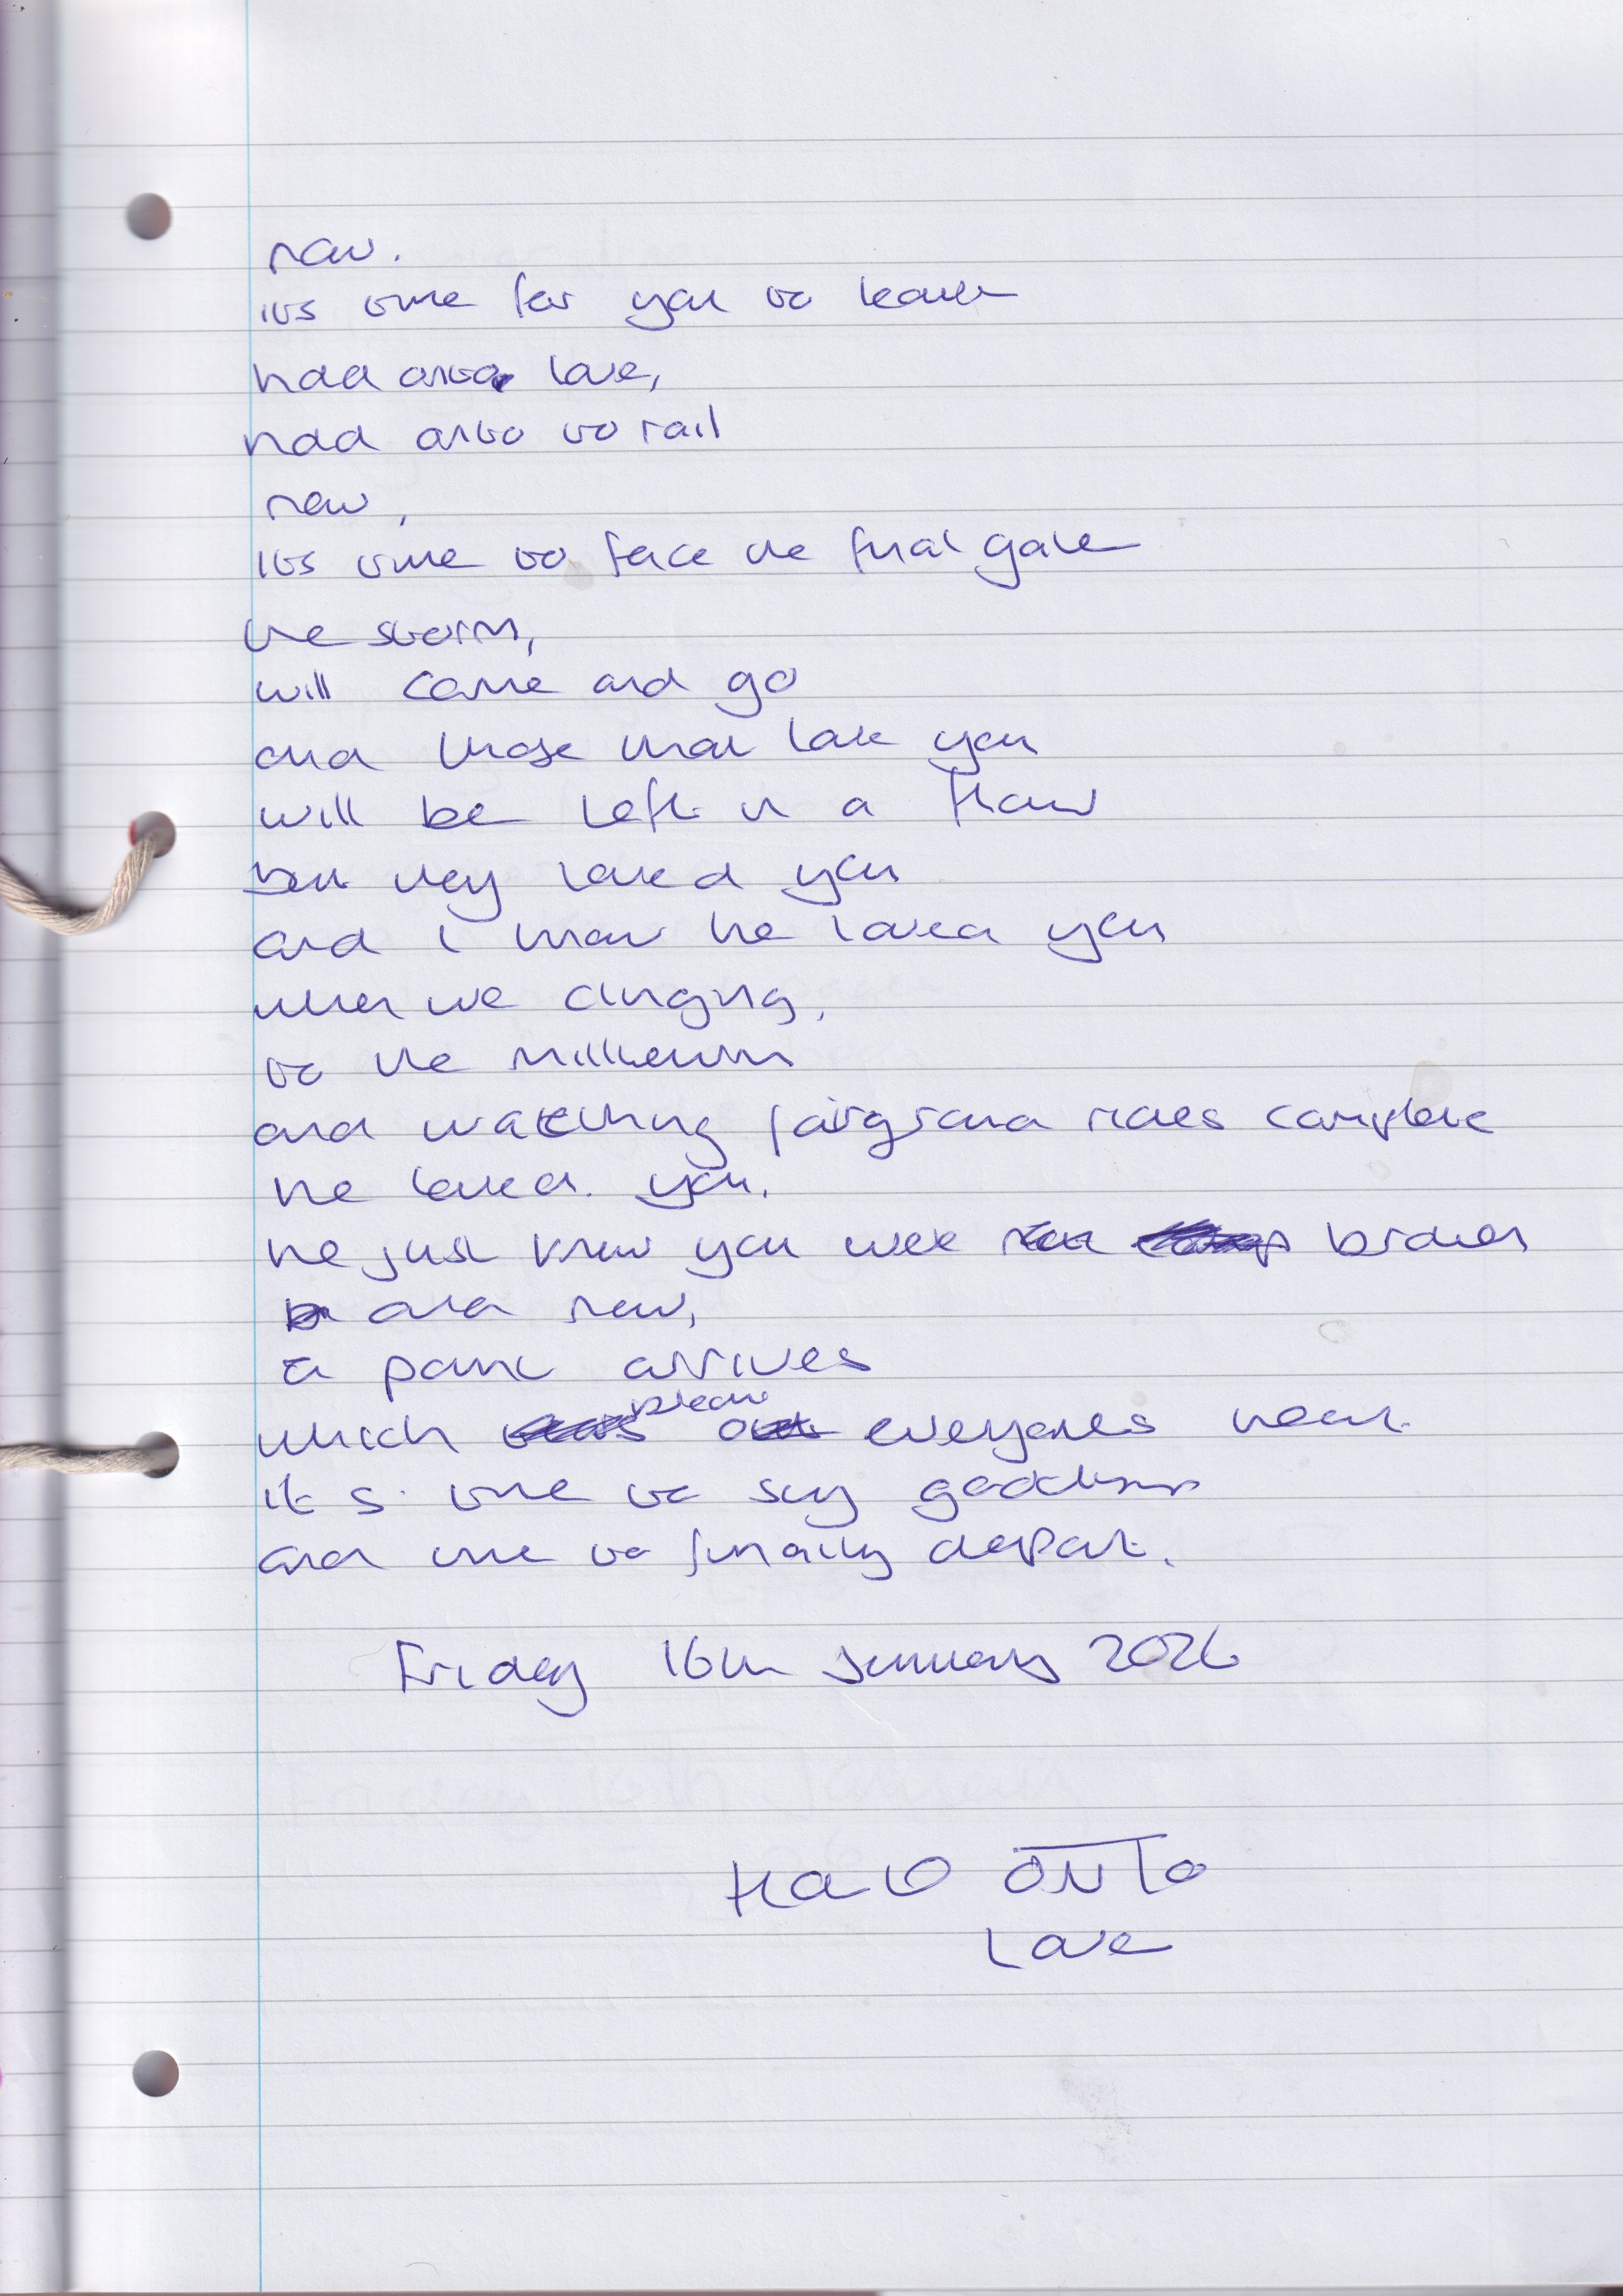 now.
its time for you to leave
hold onto love,
hold onto to rail
now,
its time to face the final gale
the storm,
will come and go
and those that love you
will be left in a flow
but they loved you
and i know he loved you
when we clinging,
to the millenium
and watching fairground rides complete
he loved you.
he just knew you were broken
and now,
a panic arrives
which break everyones heart
it s time to say goodbye
and time to finally depart.
Friday 16th January 2026
HOLD ONTO
Love